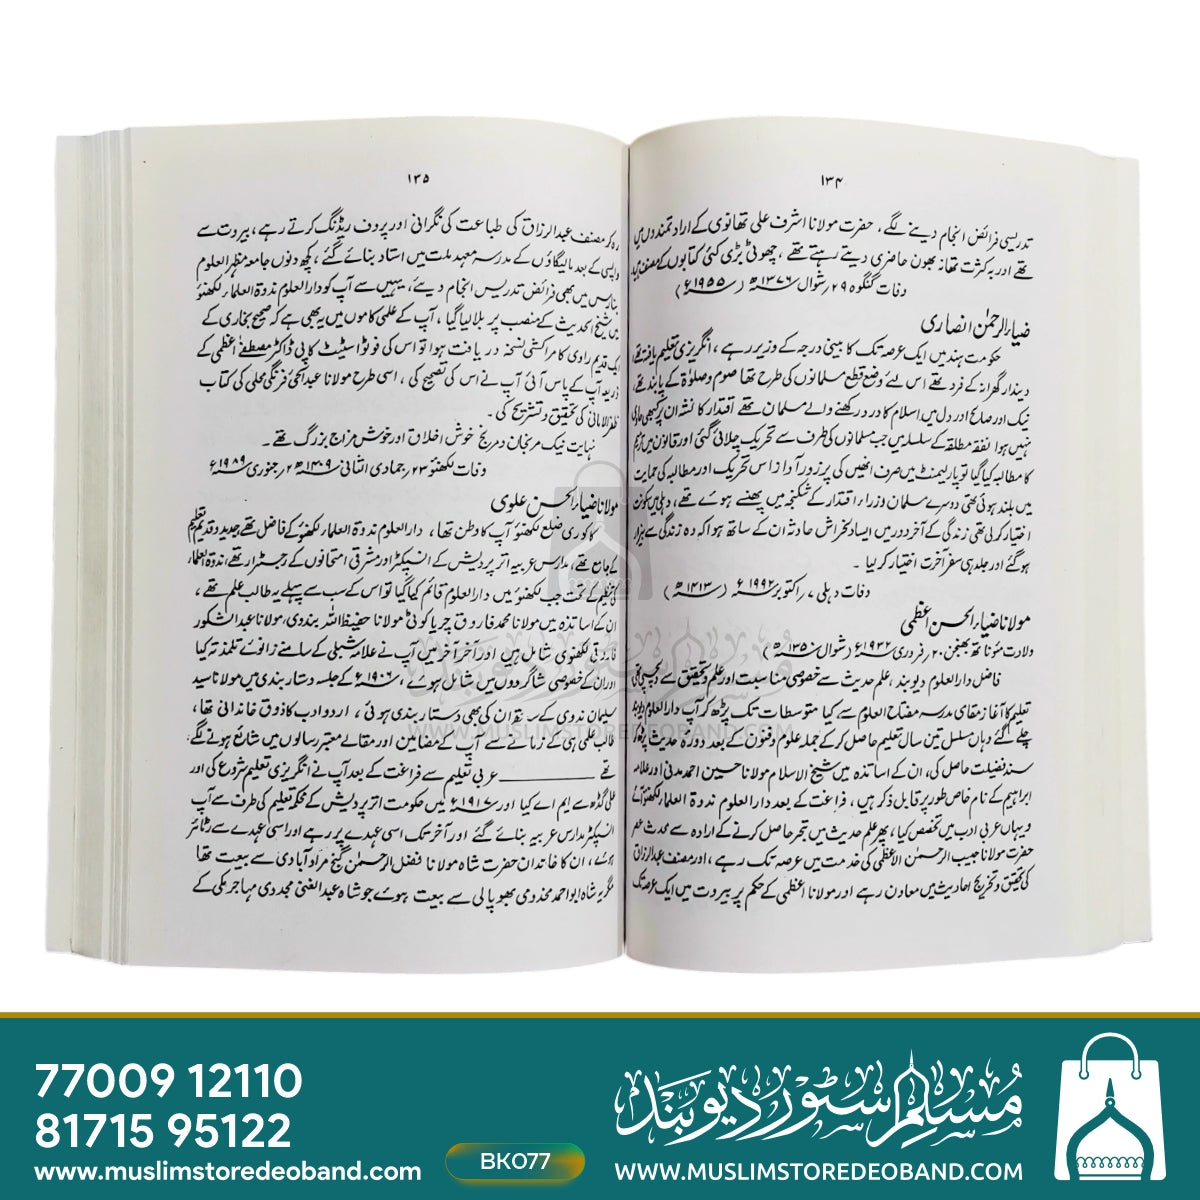 ۱۳۴
تدریسی فرائض انجام دینے لگے، حضرت مولانا اشرف علی تھانوی کے ارادتمندوں میں
تھے اور بہ کثرت تھانہ بھون حاضری دیتے رہتے تھے، چھوٹی بڑی کئی کتابوں کے مصنف ہیں
وفات گنگوہ ۲۹ر شوال ۱۳۷۶ھ (۱۹۵۵ء)
ضیاء الرحمٰن انصاری
حکومت ہند میں ایک عرصہ تک کابینی درجہ کے وزیر رہے، انگریزی تعلیم یافتہ تھے
دیندار گھرانہ کے فرد تھے اس لئے وضع قطع مسلمانوں کی طرح تھا صوم وصلوٰۃ کے پابند تھے،
نیک اور صالح اور دل میں اسلام کا درد رکھنے والے مسلمان تھے اقتدار کا نشہ ان پر کبھی طاری
نہیں ہوا نفقہ مطلقہ کے سلسلہ میں جب مسلمانوں کی طرف سے تحریک چلائی گئی اور قانون میں ترمیم
کا مطالبہ کیا گیا تو پارلیمنٹ میں صرف انھیں کی پرزور آواز اس تحریک اور مطالبہ کی حمایت
میں بلند ہوئی تھی دوسرے مسلمان وزراء اقتدار کے شکنجہ میں پھنسے ہوئے تھے، دہلی میں سکونت
اختیار کرلی تھی زندگی کے آخر دور میں ایسا دلخراش حادثہ ان کے ساتھ ہوا کہ وہ زندگی سے بیزار
ہوگئے اور جلد ہی سفر آخرت اختیار کرلیا۔
وفات دہلی ۷ر اکتوبر ۱۹۹۲ء (۱۴۱۳ھ)
مولانا ضیاء الحسن اعظمی
ولادت مئوناتھ بھنجن ۲۰ر فروری ۱۹۳۲ء (شوال ۱۳۵۰ھ)
فاضل دارالعلوم دیوبند، علم حدیث سے خصوصی مناسبت اور علم وتحقیق سے دلچسپی تھی
تعلیم کا آغاز مقامی مدرسہ مفتاح العلوم سے کیا متوسطات تک پڑھ کر آپ دارالعلوم دیوبند
چلے گئے وہاں مسلسل تین سال تعلیم حاصل کرکے جملہ علوم وفنون کے بعد دورۂ حدیث پڑھ کر
سند فضیلت حاصل کی، ان کے اساتذہ میں شیخ الاسلام مولانا حسین احمد مدنی اور علامہ
ابراہیم کے نام خاص طور پر قابل ذکر ہیں، فراغت کے بعد دارالعلوم ندوۃ العلماء لکھنؤ آئے
وہیں عربی ادب میں تخصص کیا، پھر علم حدیث میں تبحر حاصل کرنے کے ارادہ سے محدث عصر
حضرت مولانا حبیب الرحمٰن الاعظمی کی خدمت میں عرصہ تک رہے، اور مصنف عبدالرزاق
کی تحقیق وتخریج احادیث میں معاون رہے اور مولانا اعظمی کے حکم پر بیروت میں ایک عرصہ تک
۱۳۵
رہ کر مصنف عبدالرزاق کی طباعت کی نگرانی اور پروف ریڈنگ کرتے رہے، بیروت سے
واپسی کے بعد مالیگاؤں کے مدرسہ معہد ملت میں استاد بنائے گئے، کچھ دنوں جامعہ مظہر العلوم
بنارس میں بھی فرائض تدریس انجام دیئے، یہیں سے آپ کو دارالعلوم ندوۃ العلماء لکھنؤ
میں شیخ الحدیث کے منصب پر بلالیا گیا، آپ کے علمی کاموں میں یہ بھی ہے کہ صحیح بخاری کے
ایک قدیم راوی کا مراکشی نسخہ دریافت ہوا تو اس کی فوٹو اسٹیٹ کاپی ڈاکٹر مصطفےٰ اعظمی کے
ذریعہ آپ کے پاس آئی آپ نے اس کی تصحیح کی، اسی طرح مولانا عبدالحئ فرنگی محلی کی کتاب
ظفر الامانی کی تحقیق وتشریح کی۔
نہایت نیک مرنجان ومرنج خوش اخلاق اور خوش مزاج بزرگ تھے۔
وفات لکھنؤ ۲۳ر جمادی الثانی ۱۴۰۹ھ ۲ر جنوری ۱۹۸۹ء
مولانا ضیاء الحسن علوی
کاکوری ضلع لکھنؤ آپ کا وطن تھا، دارالعلوم ندوۃ العلماء لکھنؤ کے فاضل تھے جدید وقدیم تعلیم
کے جامع تھے، مدارس عربیہ اتر پردیش کے انسپکٹر اور مشرقی امتحانوں کے رجسٹرار تھے، ندوۃ العلماء
کی تنظیم کے تحت جب لکھنؤ میں دارالعلوم قائم کیا گیا تو اس کے سب سے پہلے یہ طالب علم تھے،
ان کے اساتذہ میں مولانا محمد فاروق چریاکوٹی مولانا حفیظ اللہ بندوی، مولانا عبدالشکور
فاروقی لکھنوی شامل ہیں اور آخر آخر میں آپ نے علامہ شبلی کے سامنے زانوئے تلمذ تہ کیا
اور ان کے خصوصی شاگردوں میں شامل ہوئے، ۱۹۰۶ء کے جلسہ دستار بندی میں مولانا سید
سلیمان ندوی کے ساتھ ان کی بھی دستار بندی ہوئی، اردو ادب کا ذوق خاندانی تھا،
طالب علمی ہی کے زمانے سے آپ کے مضامین اور مقالے معتبر رسالوں میں شائع ہونے لگے
تھے ——— عربی تعلیم سے فراغت کے بعد آپ نے انگریزی تعلیم شروع کی اور
علی گڈھ سے ایم اے کیا اور ۱۹۱۷ء میں حکومت اتر پردیش کے محکمہ تعلیم کی طرف سے آپ
انسپکٹر مدارس عربیہ بنائے گئے اور آخر تک اسی عہدے پر رہے اور اسی عہدے سے رٹائر
ہوئے، ان کا خاندان حضرت شاہ مولانا فضل الرحمٰن گنج مراد آبادی سے بیعت تھا
مگر یہ شاہ ابو احمد مجددی بھوپالی سے بیعت ہوئے جو شاہ عبدالغنی مجددی مہاجر مکی کے
WWW.MUSLIMSTOREDEOBAND.COM
77009 12110
81715 95122
www.muslimstoredeoband.com
BK077
مسلم سٹور دیوبند
WWW.MUSLIMSTOREDEOBAND.COM